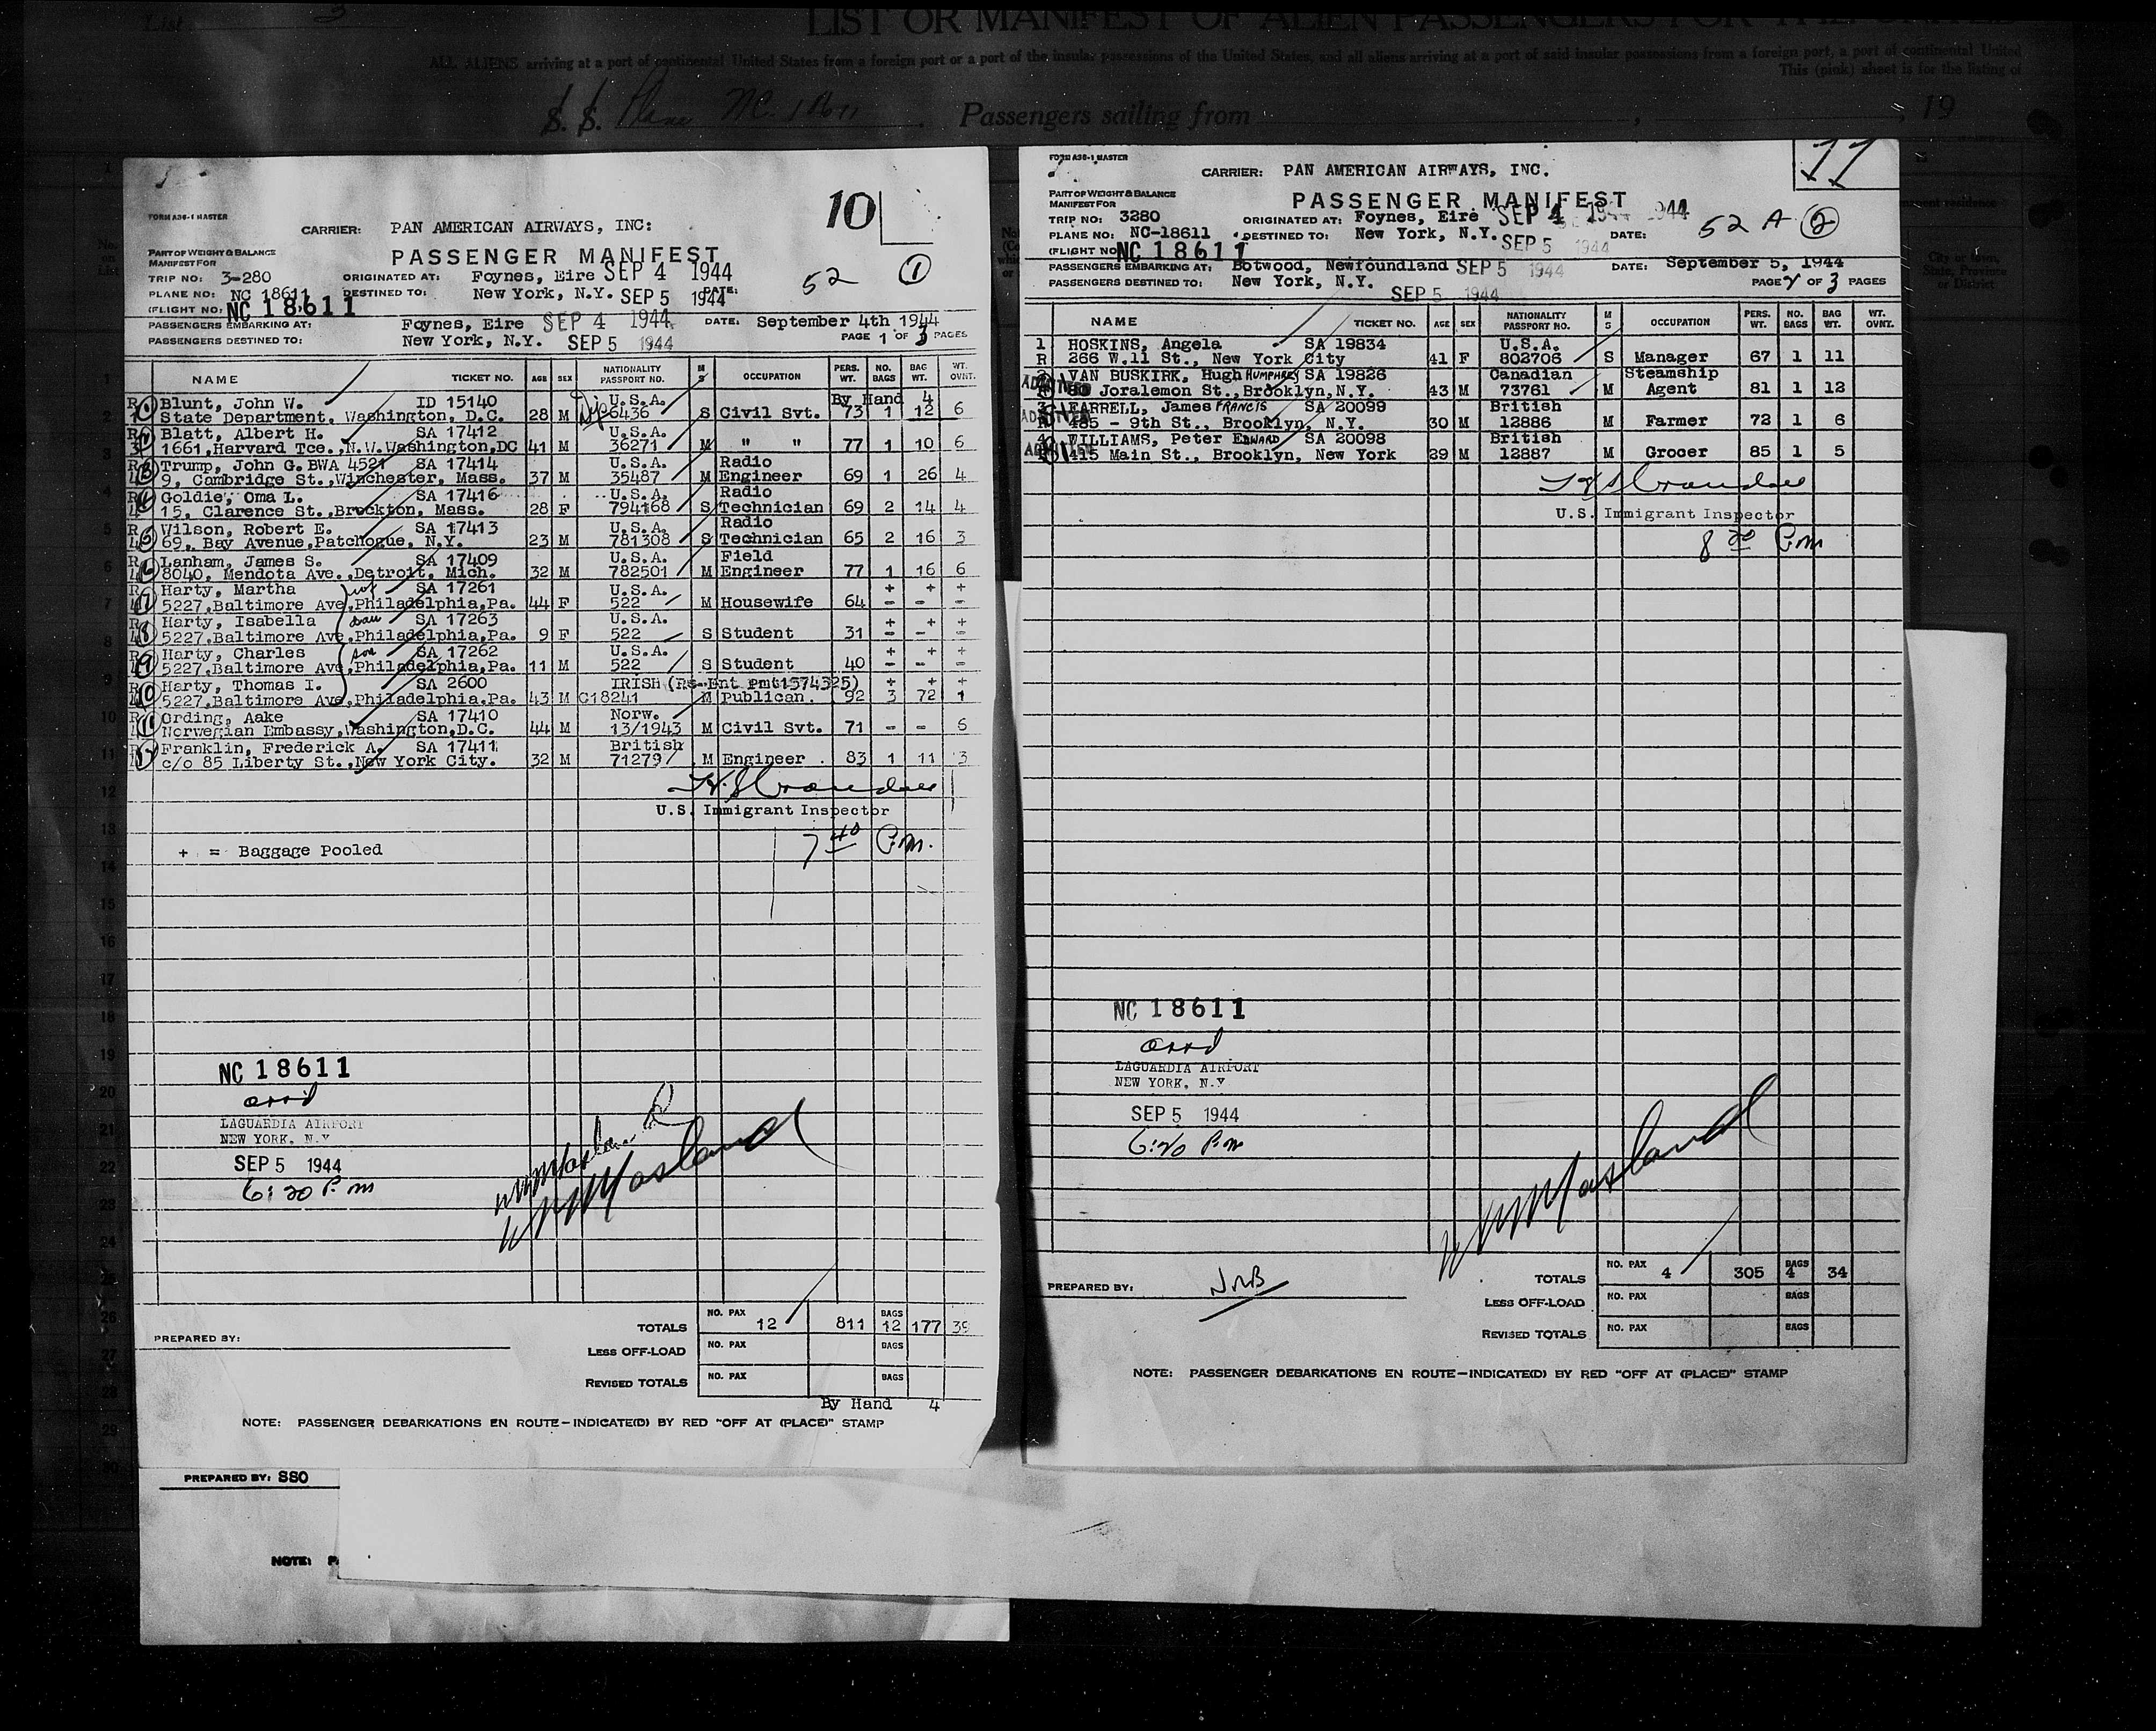 List 3
LIST OR MANIFEST OF ALIEN PASSENGERS FOR THE UNITED
ALL ALIENS arriving at a port of continental United States from a foreign port or a port of the insular possessions of the United States, and all aliens arriving at a port of said insular possessions from a foreign port, a port of continental United
This (pink) sheet is for the listing of
S. S. Plane NC. 18611 Passengers sailing from , 19
10
FORM A36-1 MASTER
CARRIER: PAN AMERICAN AIRWAYS, INC:
PART OF WEIGHT & BALANCE
MANIFEST FOR
PASSENGER MANIFEST
TRIP NO: 3-280 ORIGINATED AT: Foynes, Eire SEP 4 1944
52 1
PLANE NO: NC 18611 DESTINED TO: New York, N.Y. SEP 5 1944 DATE:
(FLIGHT NO: NC 18611
PASSENGERS EMBARKING AT: Foynes, Eire SEP 4 1944 DATE: September 4th 1944
PASSENGERS DESTINED TO: New York, N.Y. SEP 5 1944 PAGE 1 OF 3 PAGES
NAME TICKET NO. AGE SEX NATIONALITY PASSPORT NO. M S OCCUPATION PERS. WT. NO. BAGS BAG WT. WT. OVNT.
R 1 Blunt, John W. ID 15140 U.S.A. By Hand 4
State Department, Washington, D.C. 28 M Dip 6436 S Civil Svt. 73 1 12 6
R 2 Blatt, Albert H. SA 17412 U.S.A.
1661,Harvard Tce.,N.W.Washington,DC 41 M 36271 M " " 77 1 10 6
R 3 Trump, John G. BWA 4521 SA 17414 U.S.A. Radio
9, Cambridge St.,Winchester, Mass. 37 M 35487 M Engineer 69 1 26 4
R 4 Goldie, Oma L. SA 17416 U.S.A. Radio
15, Clarence St.,Brockton, Mass. 28 F 794168 S Technician 69 2 14 4
R 5 Wilson, Robert E. SA 17413 U.S.A. Radio
69, Bay Avenue,Patchogue, N.Y. 23 M 781308 S Technician 65 2 16 3
R 6 Lanham, James S. SA 17409 U.S.A. Field
8040, Mendota Ave.,Detroit, Mich. 32 M 782501 M Engineer 77 1 16 6
R 7 Harty, Martha wf SA 17261 U.S.A. + + +
5227,Baltimore Ave,Philadelphia,Pa. 44 F 522 M Housewife 64 - - -
R 8 Harty, Isabella dau SA 17263 U.S.A. + + +
5227,Baltimore Ave,Philadelphia,Pa. 9 F 522 S Student 31 - - -
R 9 Harty, Charles son SA 17262 U.S.A. + + +
5227,Baltimore Ave,Philadelphia,Pa. 11 M 522 S Student 40 - - -
R 10 Harty, Thomas I. SA 2600 IRISH (Re-Ent pmt1574325) + + +
5227,Baltimore Ave,Philadelphia,Pa. 43 M C18241 M Publican. 92 3 72 1
R 11 Ording, Aake SA 17410 Norw.
Norwegian Embassy,Washington,D.C. 44 M 13/1943 M Civil Svt. 71 - - 6
R Franklin, Frederick A. SA 17411 British
c/o 85 Liberty St.,New York City. 32 M 71279 M Engineer . 83 1 11 3
U.S. Immigrant Inspector
+ = Baggage Pooled
7 40 P.m.
NC 18611
arrd
LAGUARDIA AIRPORT
NEW YORK, N.Y
SEP 5 1944
6:20 P.m
TOTALS NO. PAX 12 811 BAGS 12 177 39
PREPARED BY:
LESS OFF-LOAD NO. PAX BAGS
REVISED TOTALS NO. PAX BAGS
By Hand 4
NOTE: PASSENGER DEBARKATIONS EN ROUTE—INDICATE(D) BY RED "OFF AT (PLACE)" STAMP
PREPARED BY: SSO
NOTE: P
11
FORM A36-1 MASTER
CARRIER: PAN AMERICAN AIRWAYS, INC.
PART OF WEIGHT & BALANCE
MANIFEST FOR
PASSENGER MANIFEST
TRIP NO: 3280 ORIGINATED AT: Foynes, Eire SEP 4 1944 1944
52 A 2
PLANE NO: NC-18611 DESTINED TO: New York, N.Y. SEP 5 1944 DATE:
(FLIGHT NO NC 18611
PASSENGERS EMBARKING AT: Botwood, Newfoundland SEP 5 1944 DATE: September 5, 1944
PASSENGERS DESTINED TO: New York, N.Y. SEP 5 1944 PAGE 2 OF 3 PAGES
NAME TICKET NO. AGE SEX NATIONALITY PASSPORT NO. M S OCCUPATION PERS. WT. NO. BAGS BAG WT. WT. OVNT.
1 HOSKINS, Angela SA 19834 U.S.A.
R 266 W.11 St., New York City 41 F 802706 S Manager 67 1 11
VAN BUSKIRK, Hugh HUMPHREY SA 19826 Canadian Steamship
ADMITTED 80 Joralemon St.,Brooklyn,N.Y. 43 M 73761 M Agent 81 1 12
FARRELL, James FRANCIS SA 20099 British
ADMITTED 485 - 9th St., Brooklyn, N.Y. 30 M 12886 M Farmer 72 1 6
WILLIAMS, Peter EDWARD SA 20098 British
ADMITTED 415 Main St., Brooklyn, New York 29 M 12887 M Grocer 85 1 5
U.S. Immigrant Inspector
8 20 P.m
NC 18611
arrd
LAGUARDIA AIRPORT
NEW YORK, N.Y
SEP 5 1944
6:20 P.m
PREPARED BY: JMB
TOTALS NO. PAX 4 305 BAGS 4 34
LESS OFF-LOAD NO. PAX BAGS
REVISED TOTALS NO. PAX BAGS
NOTE: PASSENGER DEBARKATIONS EN ROUTE—INDICATE(D) BY RED "OFF AT (PLACE)" STAMP